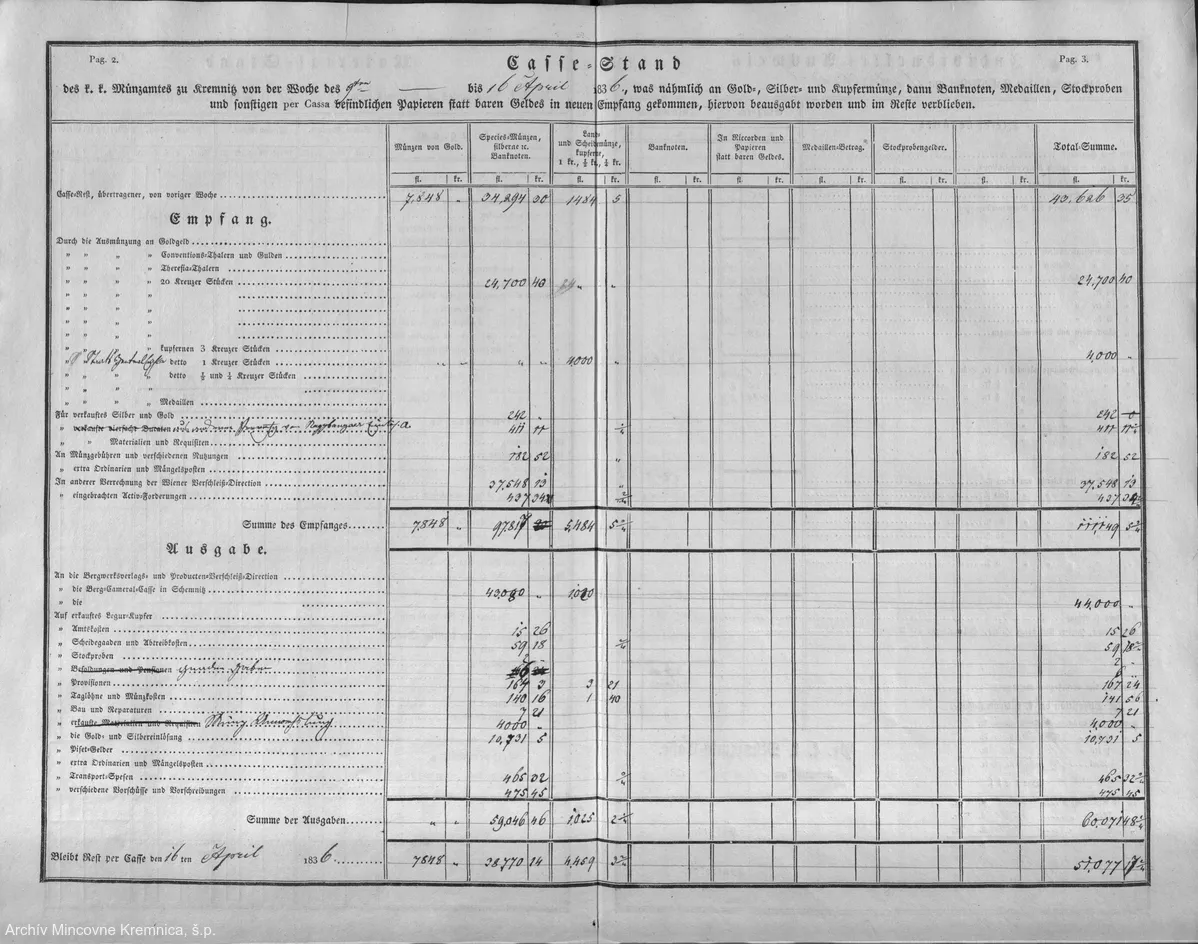 Pag. 2.
Pag. 3.
Casse-Stand
des k. k. Münzamtes zu Kremnitz von der Woche des 9ten — bis 16 April 1836., was nähmlich an Gold-, Silber- und Kupfermünze, dann Banknoten, Medaillen, Stockproben
und sonstigen per Cassa befindlichen Papieren statt baren Geldes in neuen Empfang gekommen, hiervon beausgabt worden und im Reste verblieben.
Münzen von Gold. Species-Münzen, silberne ic. Banknoten. Land- und Scheidemünze, kupferne, 1 kr., ½ kr., ¼ kr. Banknoten. In Riccorden und Papieren statt baren Geldes. Medaillen-Betrag. Stockprobengelder. Total-Summe.
fl. kr. fl. kr. fl. kr. fl. kr. fl. kr. fl. kr. fl. kr. fl. kr. fl. kr.
Casse-Rest, übertragener, von voriger Woche 7,848 „ 34,294 30 1484 5 43,626 35
Empfang.
Durch die Ausmünzung an Goldgeld
„ „ „ „ Conventions-Thalern und Gulden
„ „ „ „ Theresia-Thalern
„ „ „ „ 20 Kreuzer Stücken 24,700 40 „ „ 24,700 40
„ „ „ „
„ „ „ „
„ „ „ „
„ „ „ „
„ „ „ „ kupfernen 3 Kreuzer Stücken
„ „ detto 1 Kreuzer Stücken „ „ „ „ 4,000 „ 4,000 „
„ „ „ „ detto ½ und ¼ Kreuzer Stücken
„ „ „ „
„ „ „ „ Medaillen
Für verkauftes Silber und Gold 242 „ 242
„ verkaufte
„ „ Materialien und Requisiten
An Münzgebühren und verschiedenen Nutzungen 182 52 „ 182 52
„ extra Ordinarien und Mängelsposten
In anderer Verrechnung der Wiener Verschleiß-Direction 37,548 13 „ 37,548 13
„ eingebrachten Activ-Forderungen 437 437
Summe des Empfanges 7,848 „ 97,817 5,484 5 111,149 5
Ausgabe.
An die Bergwerksverlags- und Producten-Verschleiß-Direction
„ die Berg-Cameral-Casse in Schemnitz 43,000 „ 1,000
„ die 44,000 „
Auf erkauftes Legur-Kupfer
„ Amtskosten 15 26 15 26
„ Scheidegaaden und Abtreibkosten 59 18 59 18
„ Stockproben 2 „
„ Besoldungen und Pensionen
„ Provisionen 164 3 3 21 167 24
„ Taglöhne und Münzkosten 140 16 1 40 141 56
„ Bau und Reparaturen 7 21 7 21
„ erkaufte Materialien und Requisiten 4000 „ 4,000 „
„ die Gold- und Silbereinlösung 10,731 5 10,731 5
„ Piset-Gelder
„ extra Ordinarien und Mängelsposten
„ Transport-Spesen 465 32 465 32
„ verschiedene Vorschüsse und Vorschreibungen 475 45 475 45
Summe der Ausgaben „ „ 59,046 46 1,025 2 60,071 48
Bleibt Rest per Casse den 16 ten April 1836 7848 „ 38,770 14 4,459 3 51,077 17
Archív Mincovne Kremnica, š.p.